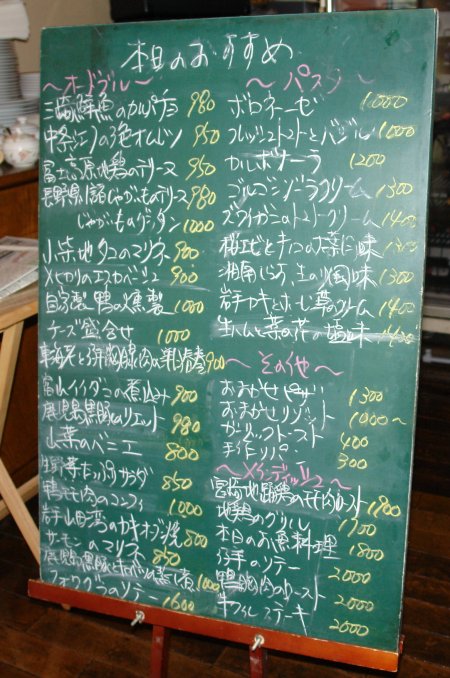 本日のおすすめ
〜オードブル〜
三崎鮮魚のカルパチョ 980
オムレツ 950
富士高原鶏のテリーヌ 950
長野県 じゃがいものテリーヌ 980
じゃがいものグラタン 1000
小柴地タコのマリネ 900
メヒカリのエスカベーシュ 900
自家製 鴨の燻製 1000
チーズ盛合せ 1000
900
富山イイダコの煮込み 900
鹿児島黒豚のリエット 980
山菜のベニエ 800
サラダ 850
鴨モモ肉のコンフィ 1000
岩手山田湾のカキオーブン焼 800
サーモンのマリネ 850
鹿児島黒豚と 蒸し煮 1000
フォワグラのソテー 1600
〜パスタ〜
ボロネーゼ 1000
フレッシュトマトとバジル 1000
カルボナーラ 1200
ゴルゴンゾーラクリーム 1300
ズワイガニのトマトクリーム 1400
桜エビと 1300
湘南しらす 風味 1300
岩手カキとホーレン草のクリーム 1400
生ハムと菜の花の塩味 1400
〜その他〜
おまかせピザ 1300
おまかせリゾット 1000〜
ガーリックトースト 400
手作りパン 300
〜メインディッシュ〜
宮崎地鶏のモモ肉ロースト 1800
地鶏のグリル 1700
本日のお魚料理 1800
のソテー 2000
鴨胸肉のロースト 2000
牛フィレステーキ 2000